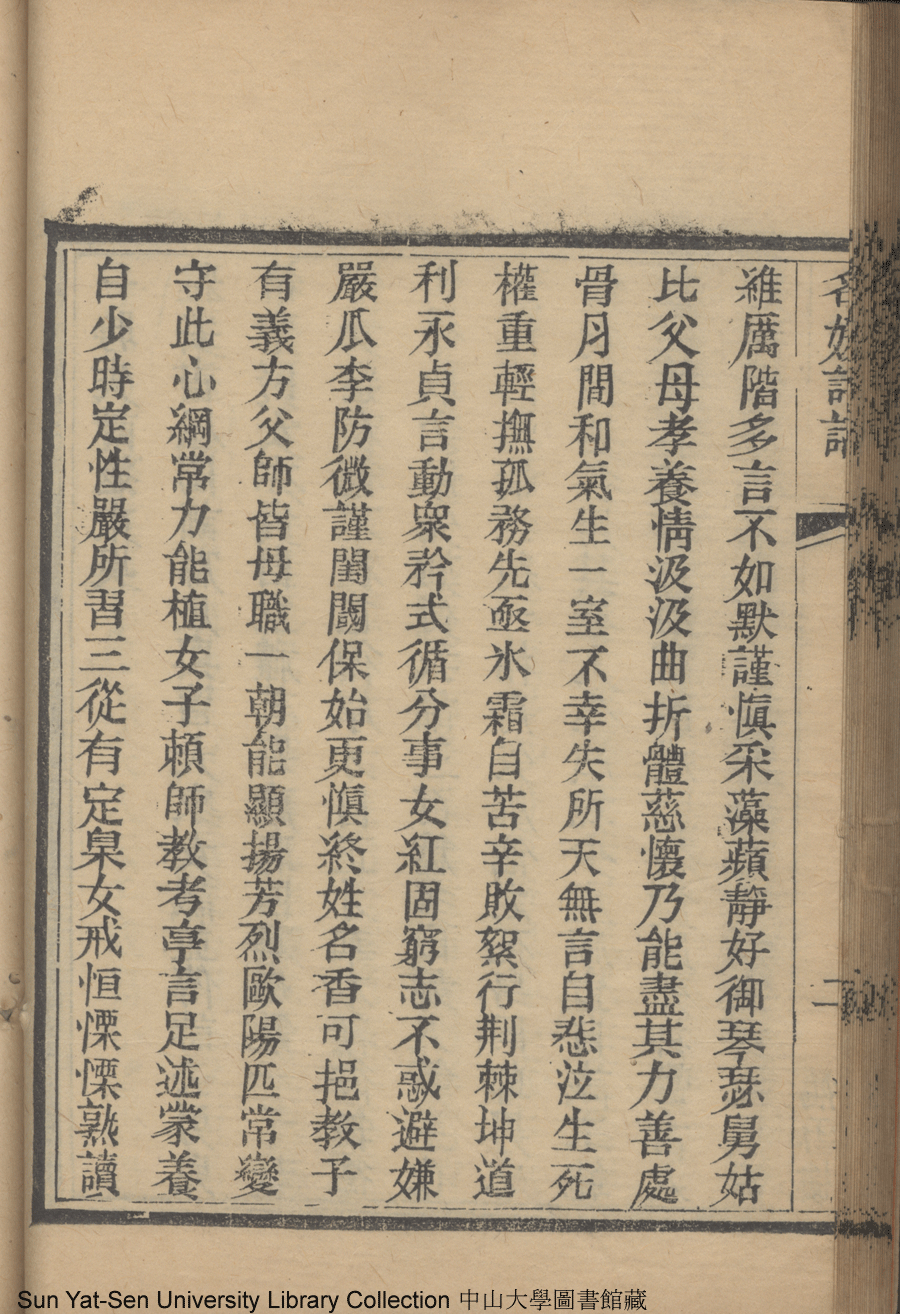 名媛詩話
二
雖厲階多言不如默謹慎采藻蘋靜好御琴瑟舅姑
比父母孝養情汲汲曲折體慈懷乃能盡其力善處
骨月間和氣生一室不幸失所天無言自悲泣生死
權重輕撫孤務先亟氷霜自苦辛敗絮行荆棘坤道
利永貞言動衆矜式循分事女紅固窮志不惑避嫌
嚴瓜李防微謹閨閾保始更慎終姓名香可挹教子
有義方父師皆母職一朝能顯揚芳烈歐陽匹常變
守此心綱常力能植女子頼師教考亭言足述蒙養
自少時定性嚴所習三從有定臬女戒恒慄慄熟讀
Sun Yat-Sen University Library Collection 中山大學圖書館藏